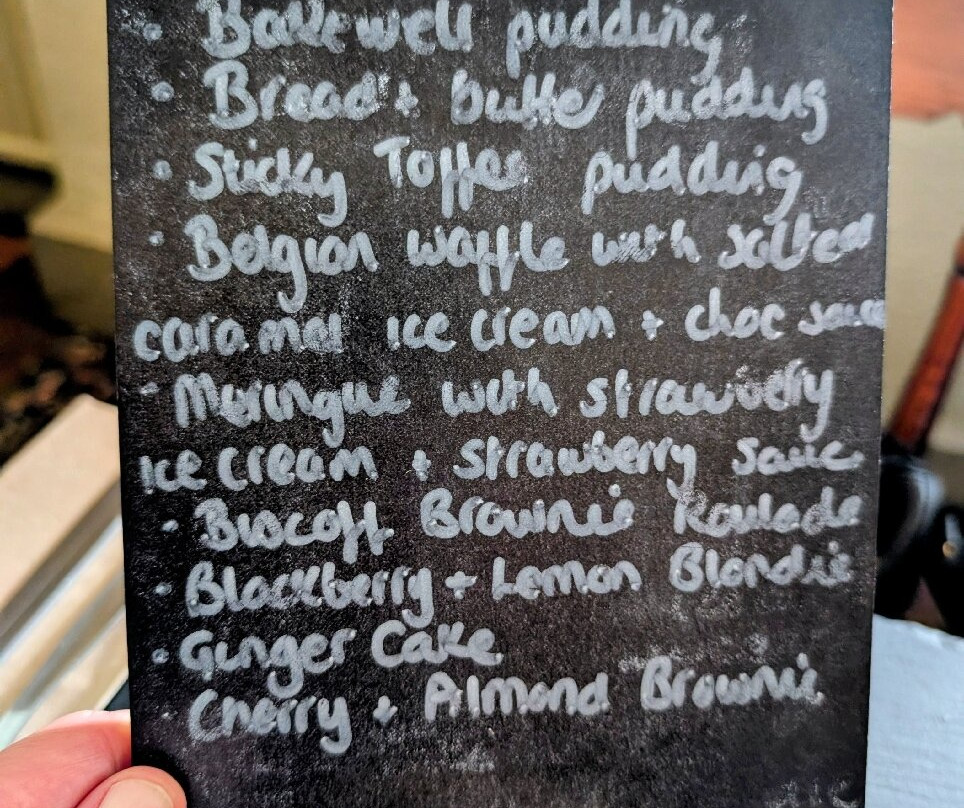 • Bakewell pudding
• Bread + butter pudding
• Sticky Toffee pudding
• Belgian waffle with salted
caramel ice cream + choc sauce
• Meringue with strawberry
ice cream + strawberry sauce
• Biscoff Brownie Roulade
• Blackberry + Lemon Blondie
• Ginger Cake
Cherry + Almond Brownie